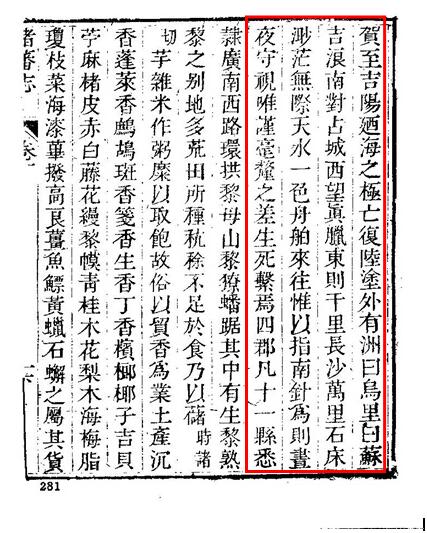 賀至吉陽廼海之極亡復陸塗外有洲曰烏里曰蘇
吉浪南對占城西望眞臘東則千里長沙萬里石床
渺茫無際天水一色舟舶來往惟以指南針爲則晝
夜守視唯謹毫釐之差生死繫焉四郡凡十一縣悉
隸廣南西路環拱黎母山黎獠蟠踞其中有生黎熟
黎之别地多荒田所種秔稌不足於食乃以藷諸時
切芋雜米作粥糜以取飽故俗以貿香爲業土產沉
香蓬萊香鷓鴣斑香箋香生香丁香檳榔椰子吉貝
苧麻楮皮赤白藤花縵黎幙青桂木花梨木海梅脂
瓊枝菜海漆蓽撥高良薑魚鰾黃蠟石蠏之屬其貨
諸蕃志
281